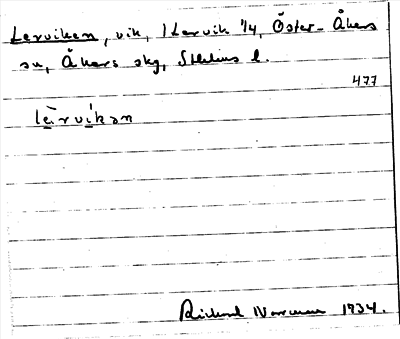 Lerviken, vik, 1 Lervik 1/4, Öster-Åkers
sn, Åkers skg, Sthlms l.
477
lè̱rvi̱kən
Rickard 1934.